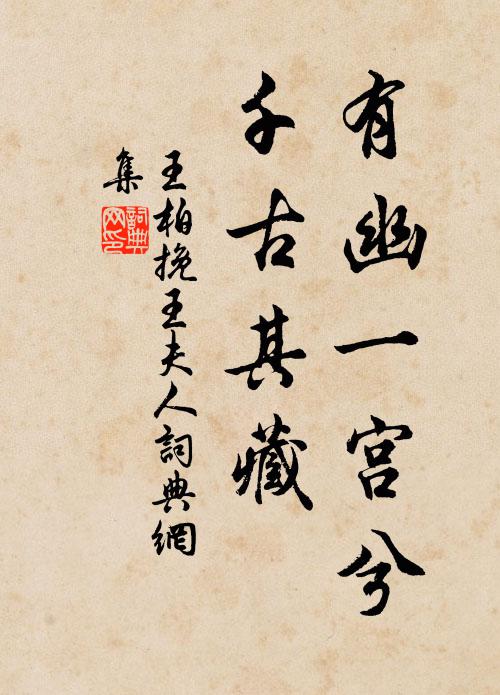 有幽一宫兮
千古其藏
王柏挽王夫人詞典網
集
詞典
网印